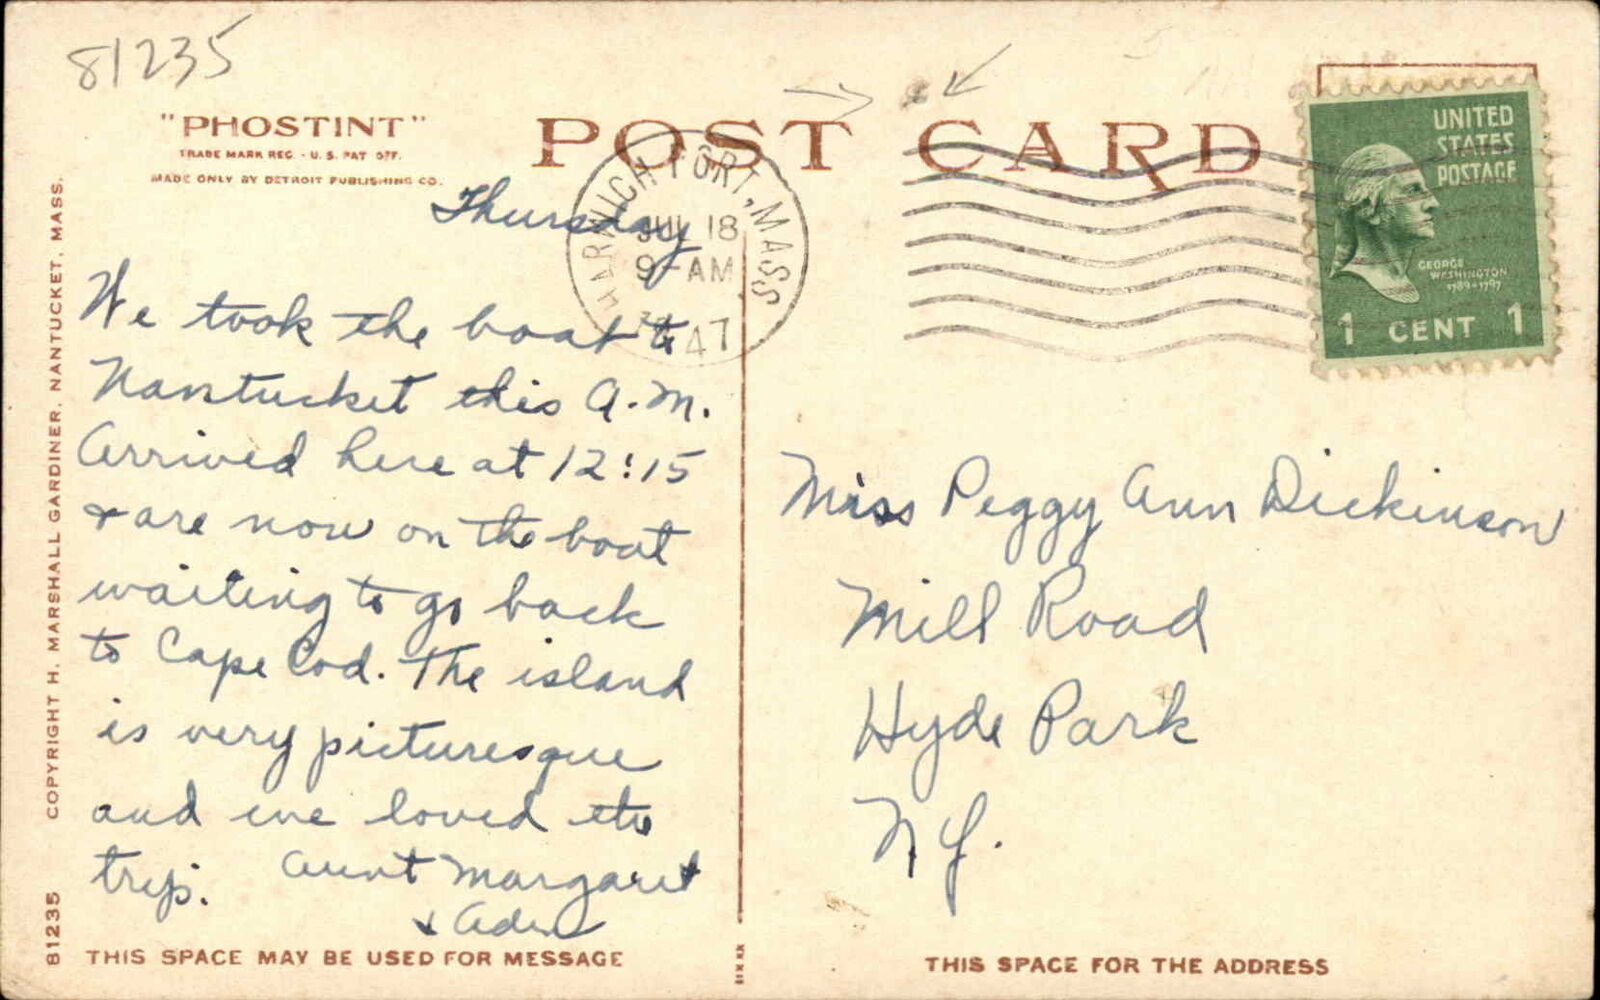 81235
"PHOSTINT"
TRADE MARK REG. U.S. PAT OFF.
MADE ONLY BY DETROIT PUBLISHING CO.
POST CARD
HARWICH PORT, MASS
JUL 18
9-AM
47
UNITED
STATES
POSTAGE
GEORGE
WASHINGTON
1789-1797
1 CENT 1
Thursday
We took the boat to
Nantucket this A.M.
Arrived here at 12:15
& are now on the boat
waiting to go back
to Cape Cod. The island
is very picturesque
and we loved the
trip. Aunt Margaret
&
Miss Peggy Ann Dickinson
Mill Road
Hyde Park
N.Y.
81235 COPYRIGHT H. MARSHALL GARDINER, NANTUCKET, MASS.
THIS SPACE MAY BE USED FOR MESSAGE
THIS SPACE FOR THE ADDRESS